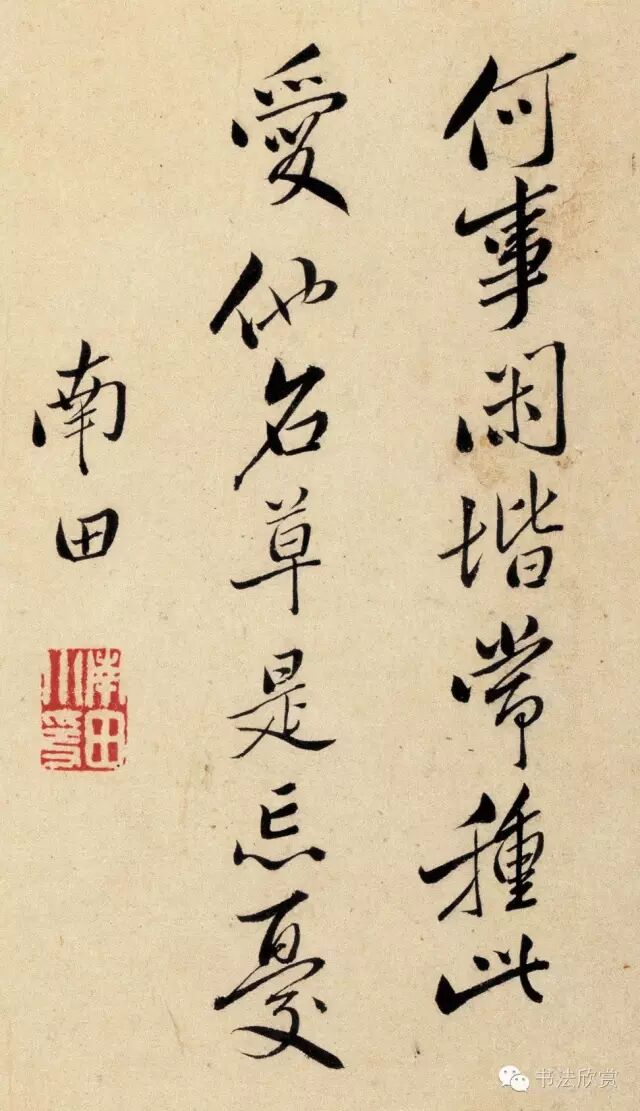 何事閑堦常種此
愛他名草是忘憂
南田
南田小草
书法欣赏